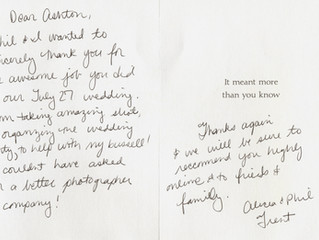 Dear Ashton,
Phil & I wanted to
sincerely thank you for
the awesome job you did
our July 27 wedding.
From taking amazing shots,
organizing the wedding
party, to help with my bussell!
couldn't have asked
a better photographer
company!
It meant more
than you know
Thanks again
& we will be sure to
recommend you highly
online & to friends &
family.
Alicia & Phil